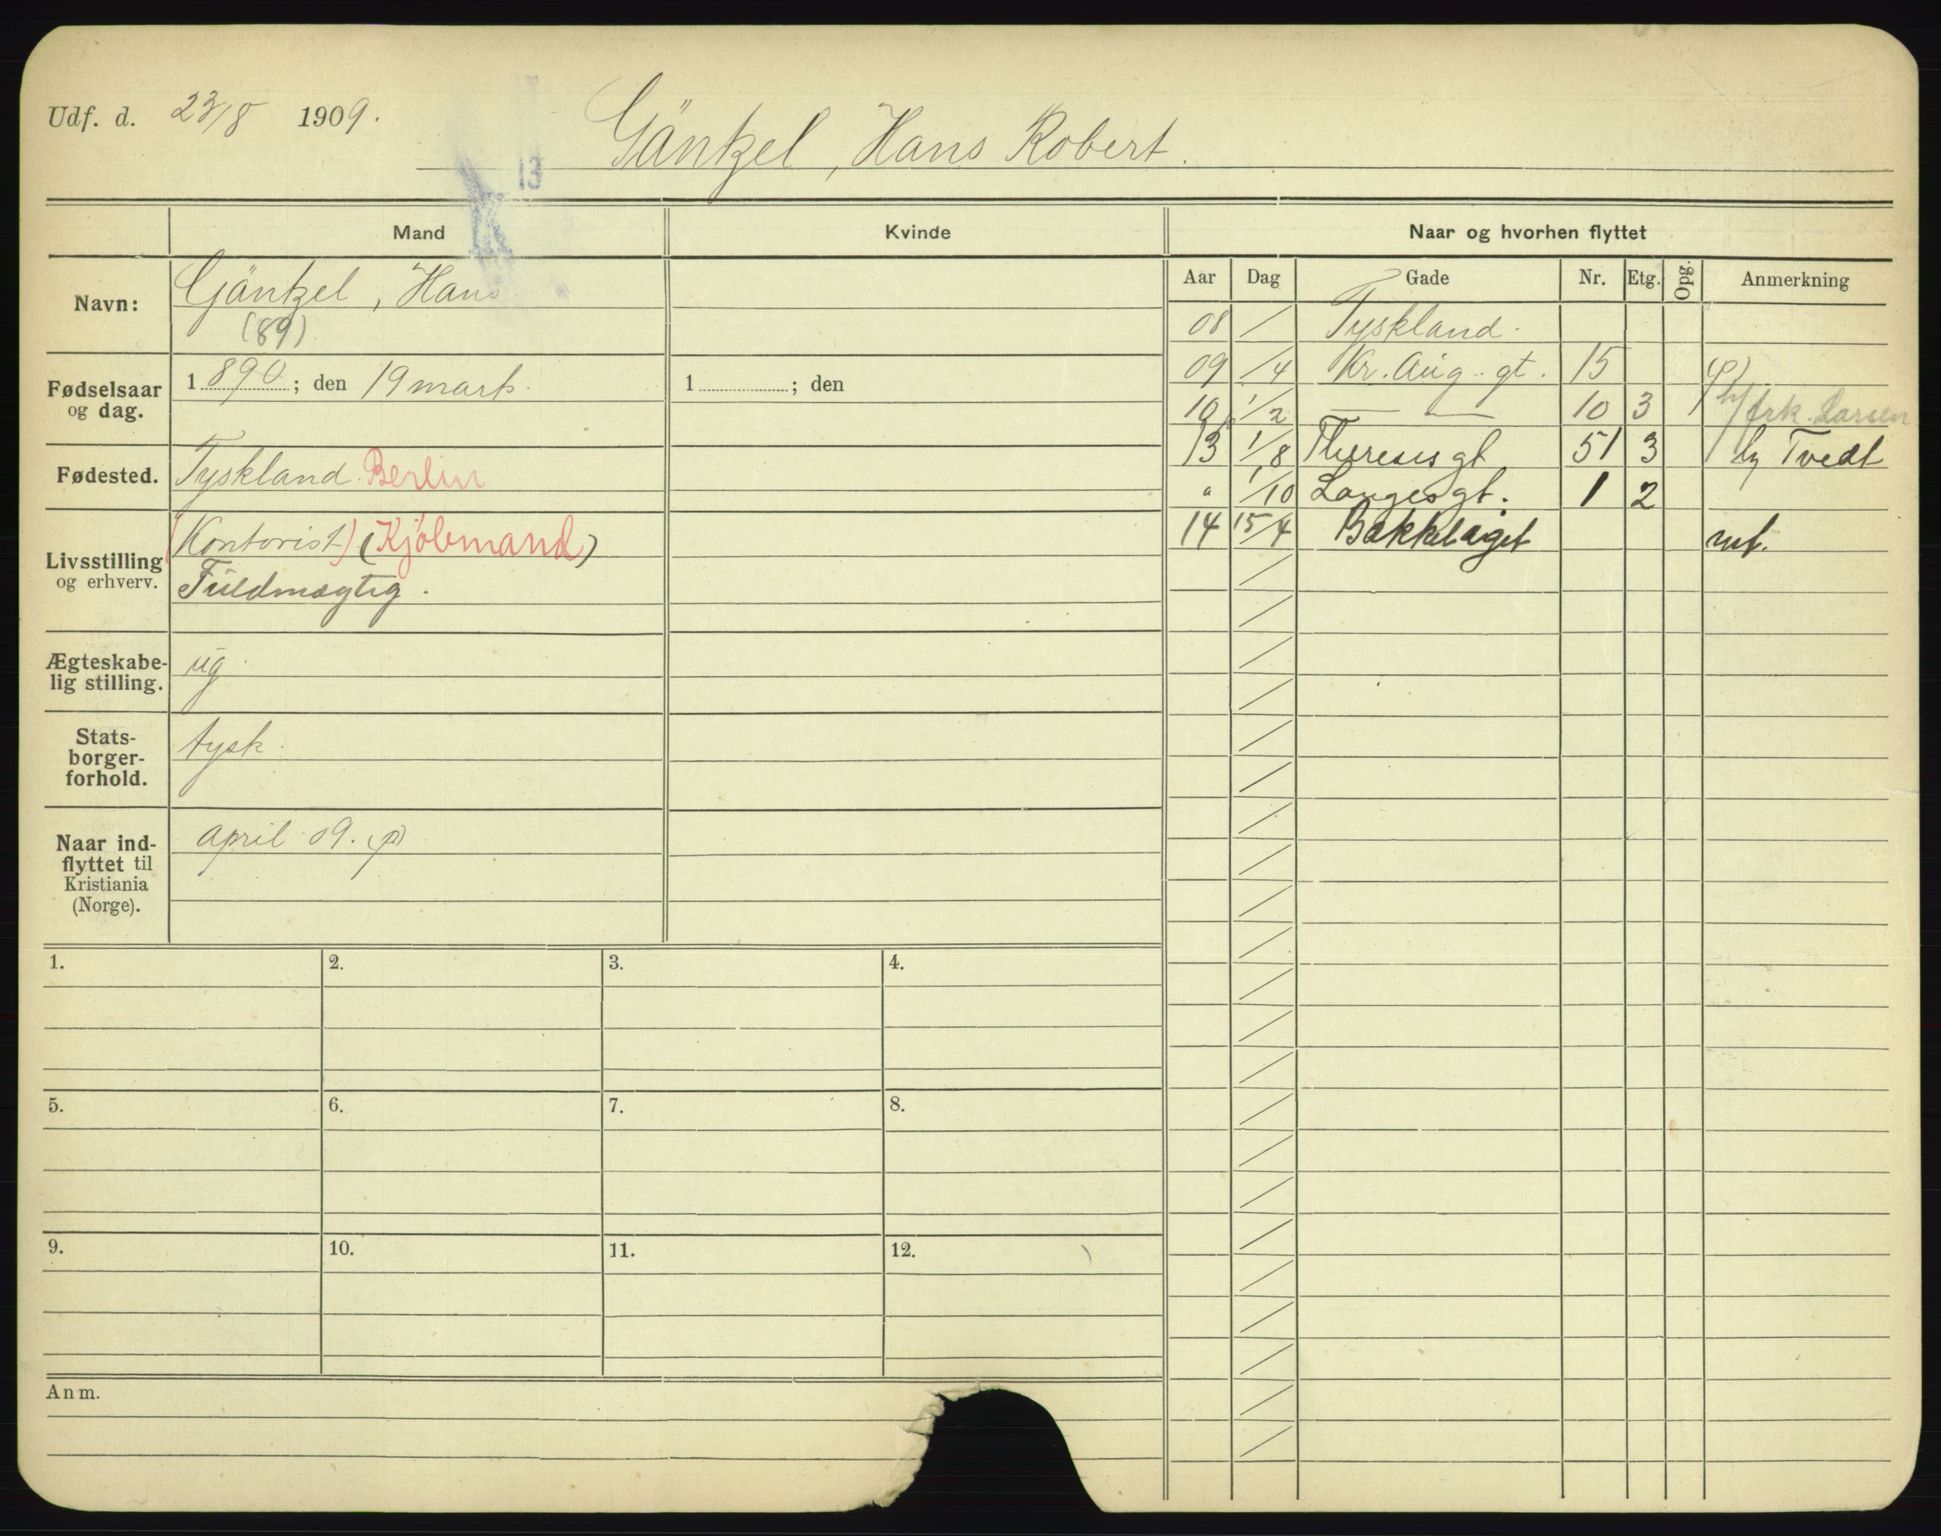 Udf. d. 23/8 1909.
Gänkel, Hans Robert.
13
Mand Kvinde Naar og hvorhen flyttet
Aar Dag Gade Nr. Etg. Opg. Anmerkning
Navn: Gänkel, Hans
(89)
Fødselsaar og dag. 1 890 ; den 19 marts. 1 ; den
Fødested. Tyskland. Berlin
Livsstilling og erhverv. (Kontorist) (Kjøbmand)
Fuldmægtig.
Ægteskabelig stilling. ug.
Statsborgerforhold. tysk.
Naar indflyttet til Kristiania (Norge). april 09. (p)
08 / Tyskland.
09 /4 Kr. Aug. gt. 15
10 1/2 — — 10 3 h/ frk. Larsen
13 1/8 Theresesgt 51 3 Tvedt
" 1/10 Langesgt. 1 2
14 15/4 Bækkelaget mf.
1. 2. 3. 4.
5. 6. 7. 8.
9. 10. 11. 12.
Anm.